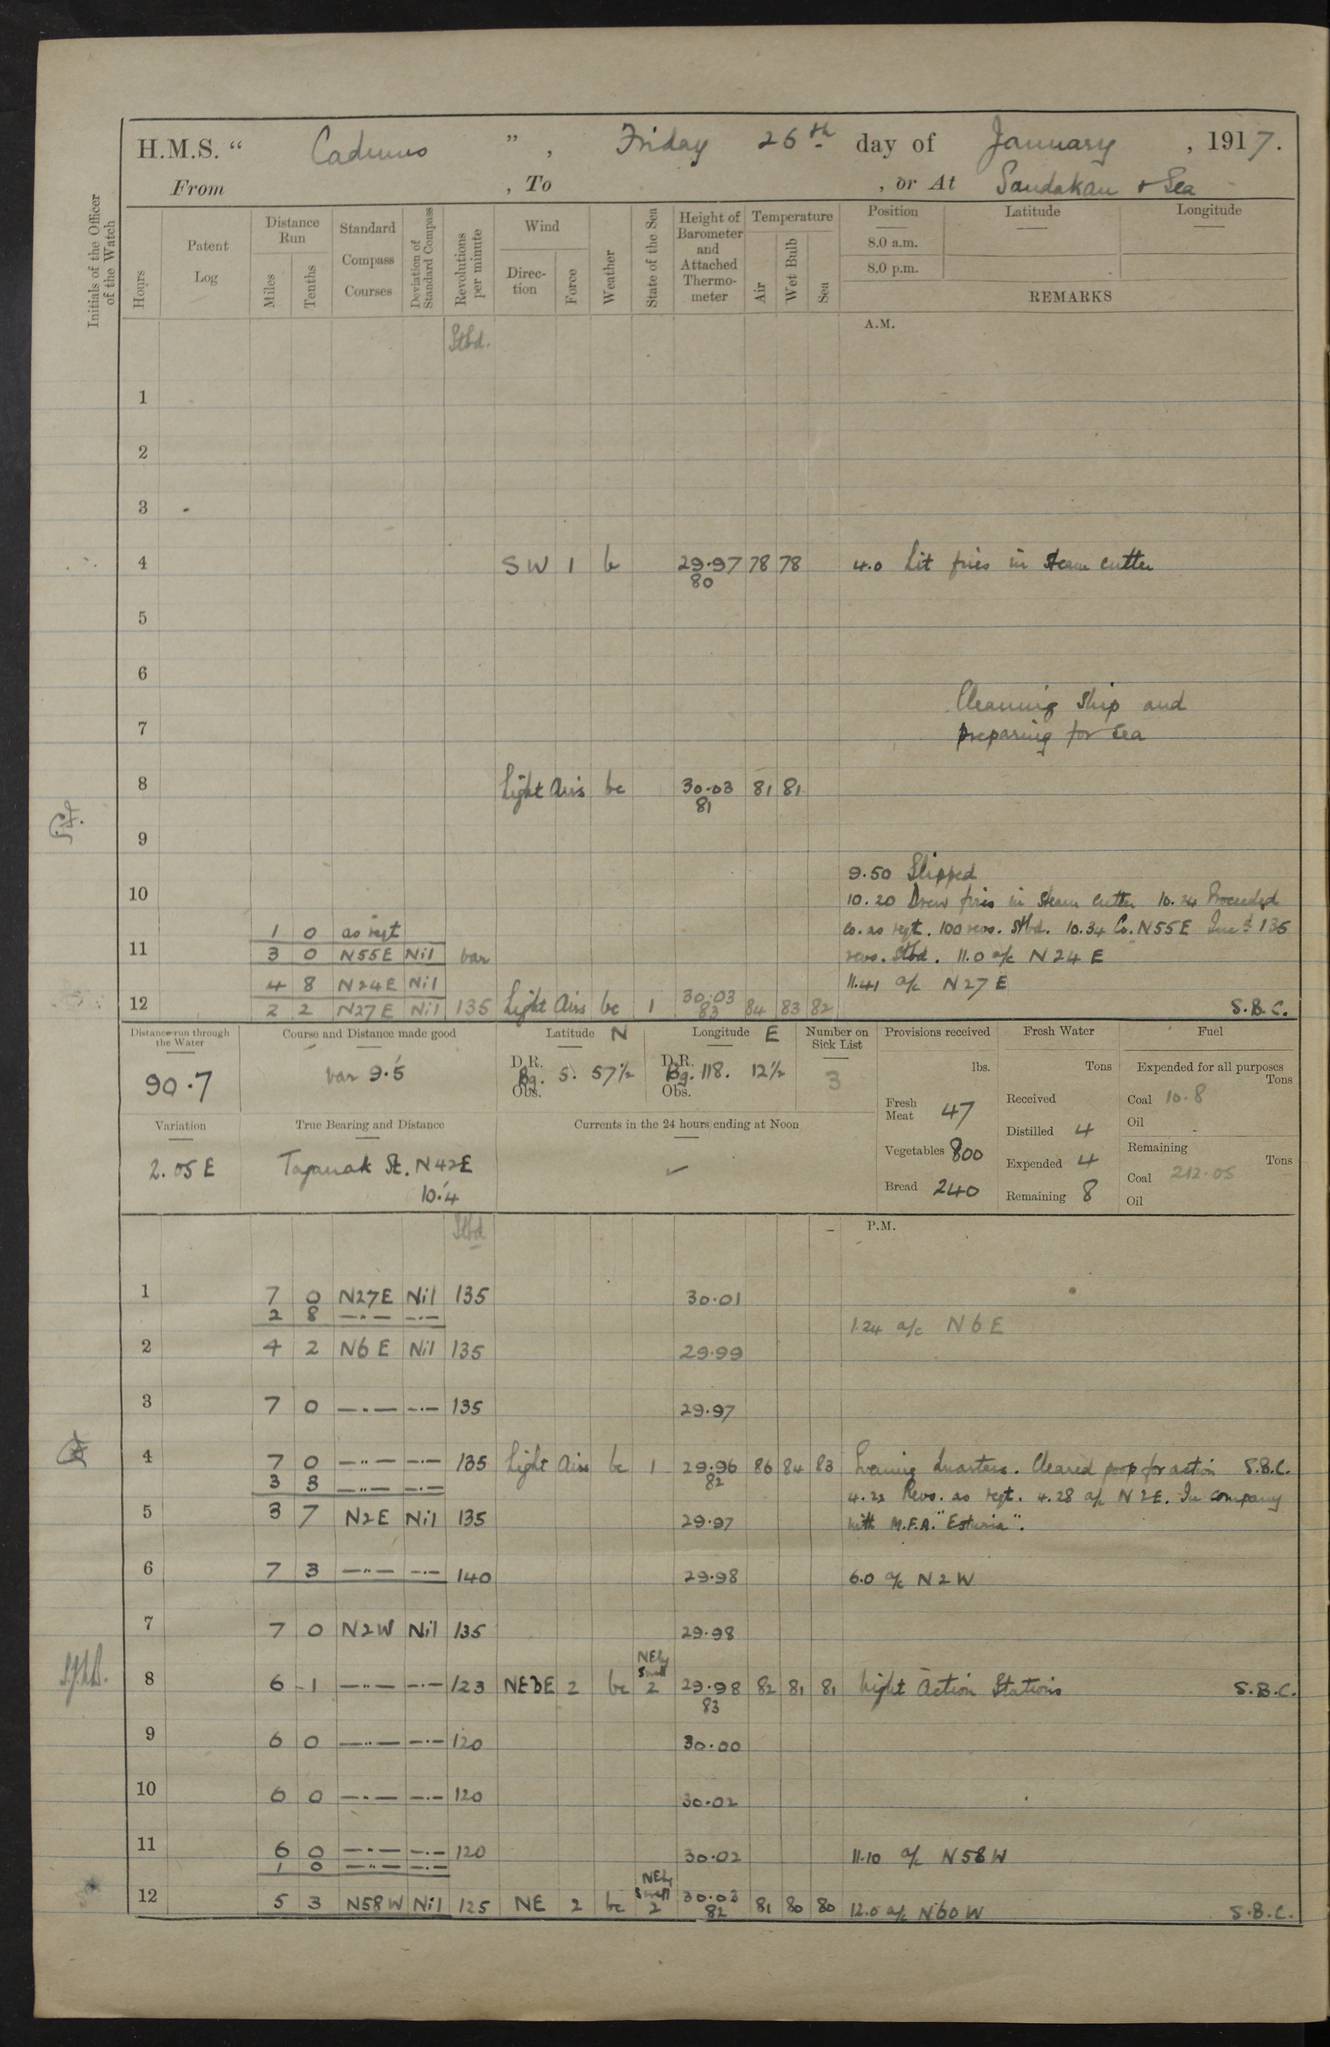 H.M.S. “ Cadmus ” , Friday 26th day of January , 1917.
From , To , or At Sandakan & Sea
Initials of the Officer of the Watch
Hours
Patent Log
Distance Run
Miles
Tenths
Standard Compass Courses
Deviation of Standard Compass
Revolutions per minute
Wind
Direction
Force
Weather
State of the Sea
Height of Barometer and Attached Thermometer
Temperature
Air
Wet Bulb
Sea
Position Latitude Longitude
8.0 a.m.
8.0 p.m.
REMARKS
Stbd. A.M.
1
2
3
4 SW 1 bc 29.97 78 78 4.0 Lit fires in steam cutter
80
5
6
Cleaning ship and
7 preparing for sea
8 Light Airs bc 30.03 81 81
81
9
9.50 Slipped
10 10.20 Drew fires in steam cutter 10.24 Proceeded
1 0 as reqt Co. as reqt. 100 revs. Stbd. 10.34 Co. N55E Incd 135
11 3 0 N55E Nil var revs. Stbd. 11.0 a/c N24E
4 8 N24E Nil 11.41 a/c N27E
12 2 2 N27E Nil 135 Light Airs bc 1 30.03 84 83 82 S.B.C.
83
Distance run through the Water
90.7
Course and Distance made good
var 9.5
Latitude N
D.R.
Bg. 5. 57½
Obs.
Longitude E
D.R.
Bg. 118. 12½
Obs.
Number on Sick List
3
Provisions received
lbs.
Fresh Meat 47
Vegetables 800
Bread 240
Fresh Water
Tons
Received
Distilled 4
Expended 4
Remaining 8
Fuel
Expended for all purposes
Tons
Coal 10.8
Oil -
Remaining
Tons
Coal 212.05
Oil
Variation
2.05 E
True Bearing and Distance
Taganak St. N42E
10.4
Currents in the 24 hours ending at Noon
✓
Stbd P.M.
1 7 0 N27E Nil 135 30.01
2 8 —·— —·— 1.24 a/c N6E
2 4 2 N6E Nil 135 29.99
3 7 0 —·— —·— 135 29.97
4 7 0 —·— —·— 135 Light Airs bc 1 29.96 86 84 83 Evening Quarters. Cleared poop for action S.B.C.
82
3 3 —·— —·— 4.22 Revs. as reqt. 4.28 a/c N2E. In company
5 3 7 N2E Nil 135 29.97 with M.F.A. "Esturia".
6 7 3 —·— —·— 140 29.98 6.0 a/c N2W
7 7 0 N2W Nil 135 29.98
8 6 1 —·— —·— 123 NEbE 2 bc NEly Swell 2 29.98 82 81 81 Night Action Stations S.B.C.
83
9 6 0 —·— —·— 120 30.00
10 6 0 —·— —·— 120 30.02
11 6 0 —·— —·— 120 30.02 11.10 a/c N58W
1 0 —·— —·—
12 5 3 N58W Nil 125 NE 2 bc NEly Swell 2 30.03 81 80 80 12.0 a/c N60W S.B.C.
82